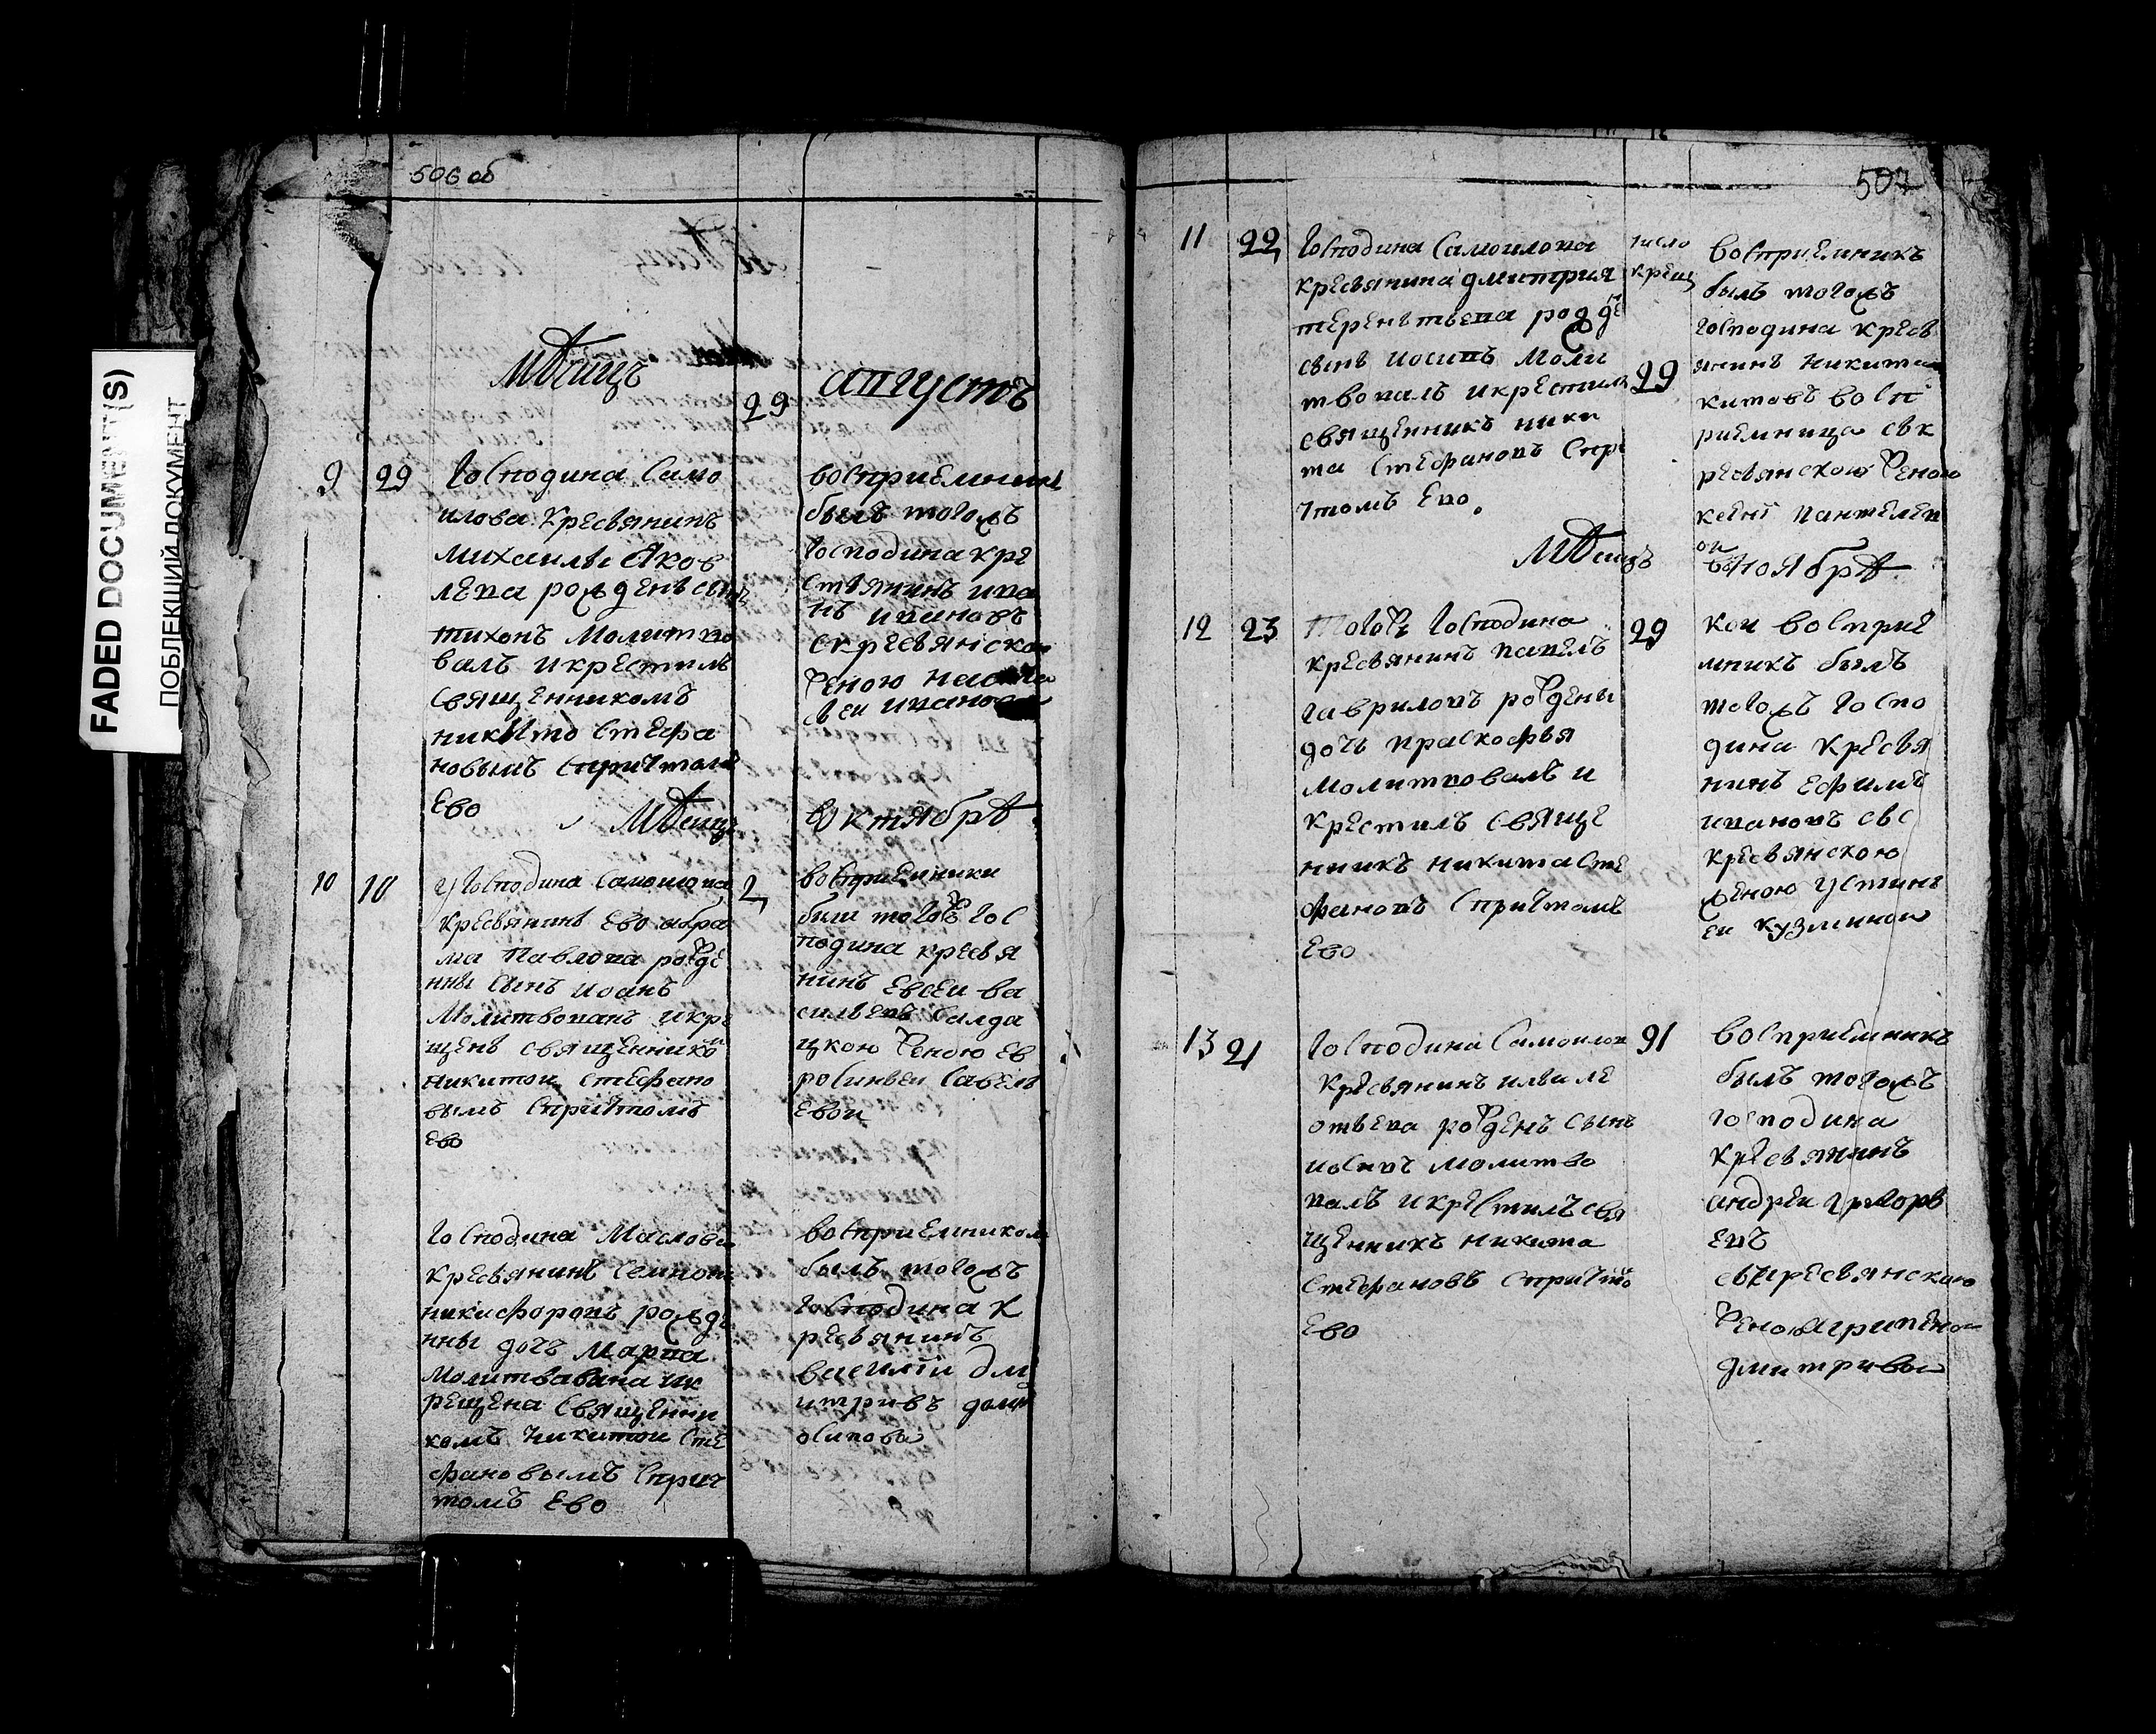 FADED DOCUMENT(S)
ПОБЛЕКШИЙ ДОКУМЕНТ
506 об
Мѣсицъ
29
августъ
9
29
Господина Само
илова Кресвянинъ
михаилы Яков
лева рожденъ сынъ
тихонъ молитво
валъ и крестилъ
священникомъ
никито стефа
новымъ спричтомъ
Ево
восприемникъ
былъ тогожъ
господина кре
ствянинъ ива
нъ ивановъ
скресвянскою
женою
Мѣсицъ
октябрѣ
10
10
господина самоилова
кресвянинъ Ево абра
ма Павлова рожде
нны сынъ иоанъ
Молитвованъ икре
щенъ священнико
никитои стефано
вымъ спричтомъ
ево
2
восприемники
были тогожъ гос
подина кресвя
нинъ Евсеи ва
сильевъ салда
цкою женою ев
росинъеи савель
евои
господина Маслова
кресвянинъ
никифоровъ рожде
нны дочъ Марва
молитвавана ик
рещена священни
комъ никитои сте
фановымъ сприч
томъ Ево
восприемником
былъ тогожъ
господина к
ресвянинъ
василіи дм
итривъ
осипова
507
11
22
господина самоилова
кресвянина дмитрия
терентьева рожде
сынъ иосивъ моли
твовалъ икрестилъ
священникъ ники
та стефановъ спри
чтомъ Ево
число
крещ
29
восприемникъ
былъ тогожъ
господина кресв
янинъ никита ни
китовъ восп
риемница свк
ресвянскою женою
пантелев
ои
Мѣсицъ
ноябрѣ
12
23
тогожъ господина
кресвянинъ павелъ
гавриловъ рождены
дочь праскофья
молитвовалъ и
крестилъ свяще
нникъ никита сте
фановъ спричтомъ
Ево
29
кои восприе
мникъ былъ
тогожъ госпо
дина кресвя
нинъ ефимъ
ивановъ свс
кресвянскою
женою устинь
еи кузминои
13
21
господина самоилов
кресвянинъ илва ле
отьева рожденъ сынъ
иосивъ молитво
валъ и крестилъ свя
щенникъ никита
стефановъ спричто
Ево
91
восприемникъ
былъ тогожъ
господина
кресвянинъ
андреи григорв
евъ
свкресвянскою
женою агрипено
дмитривы